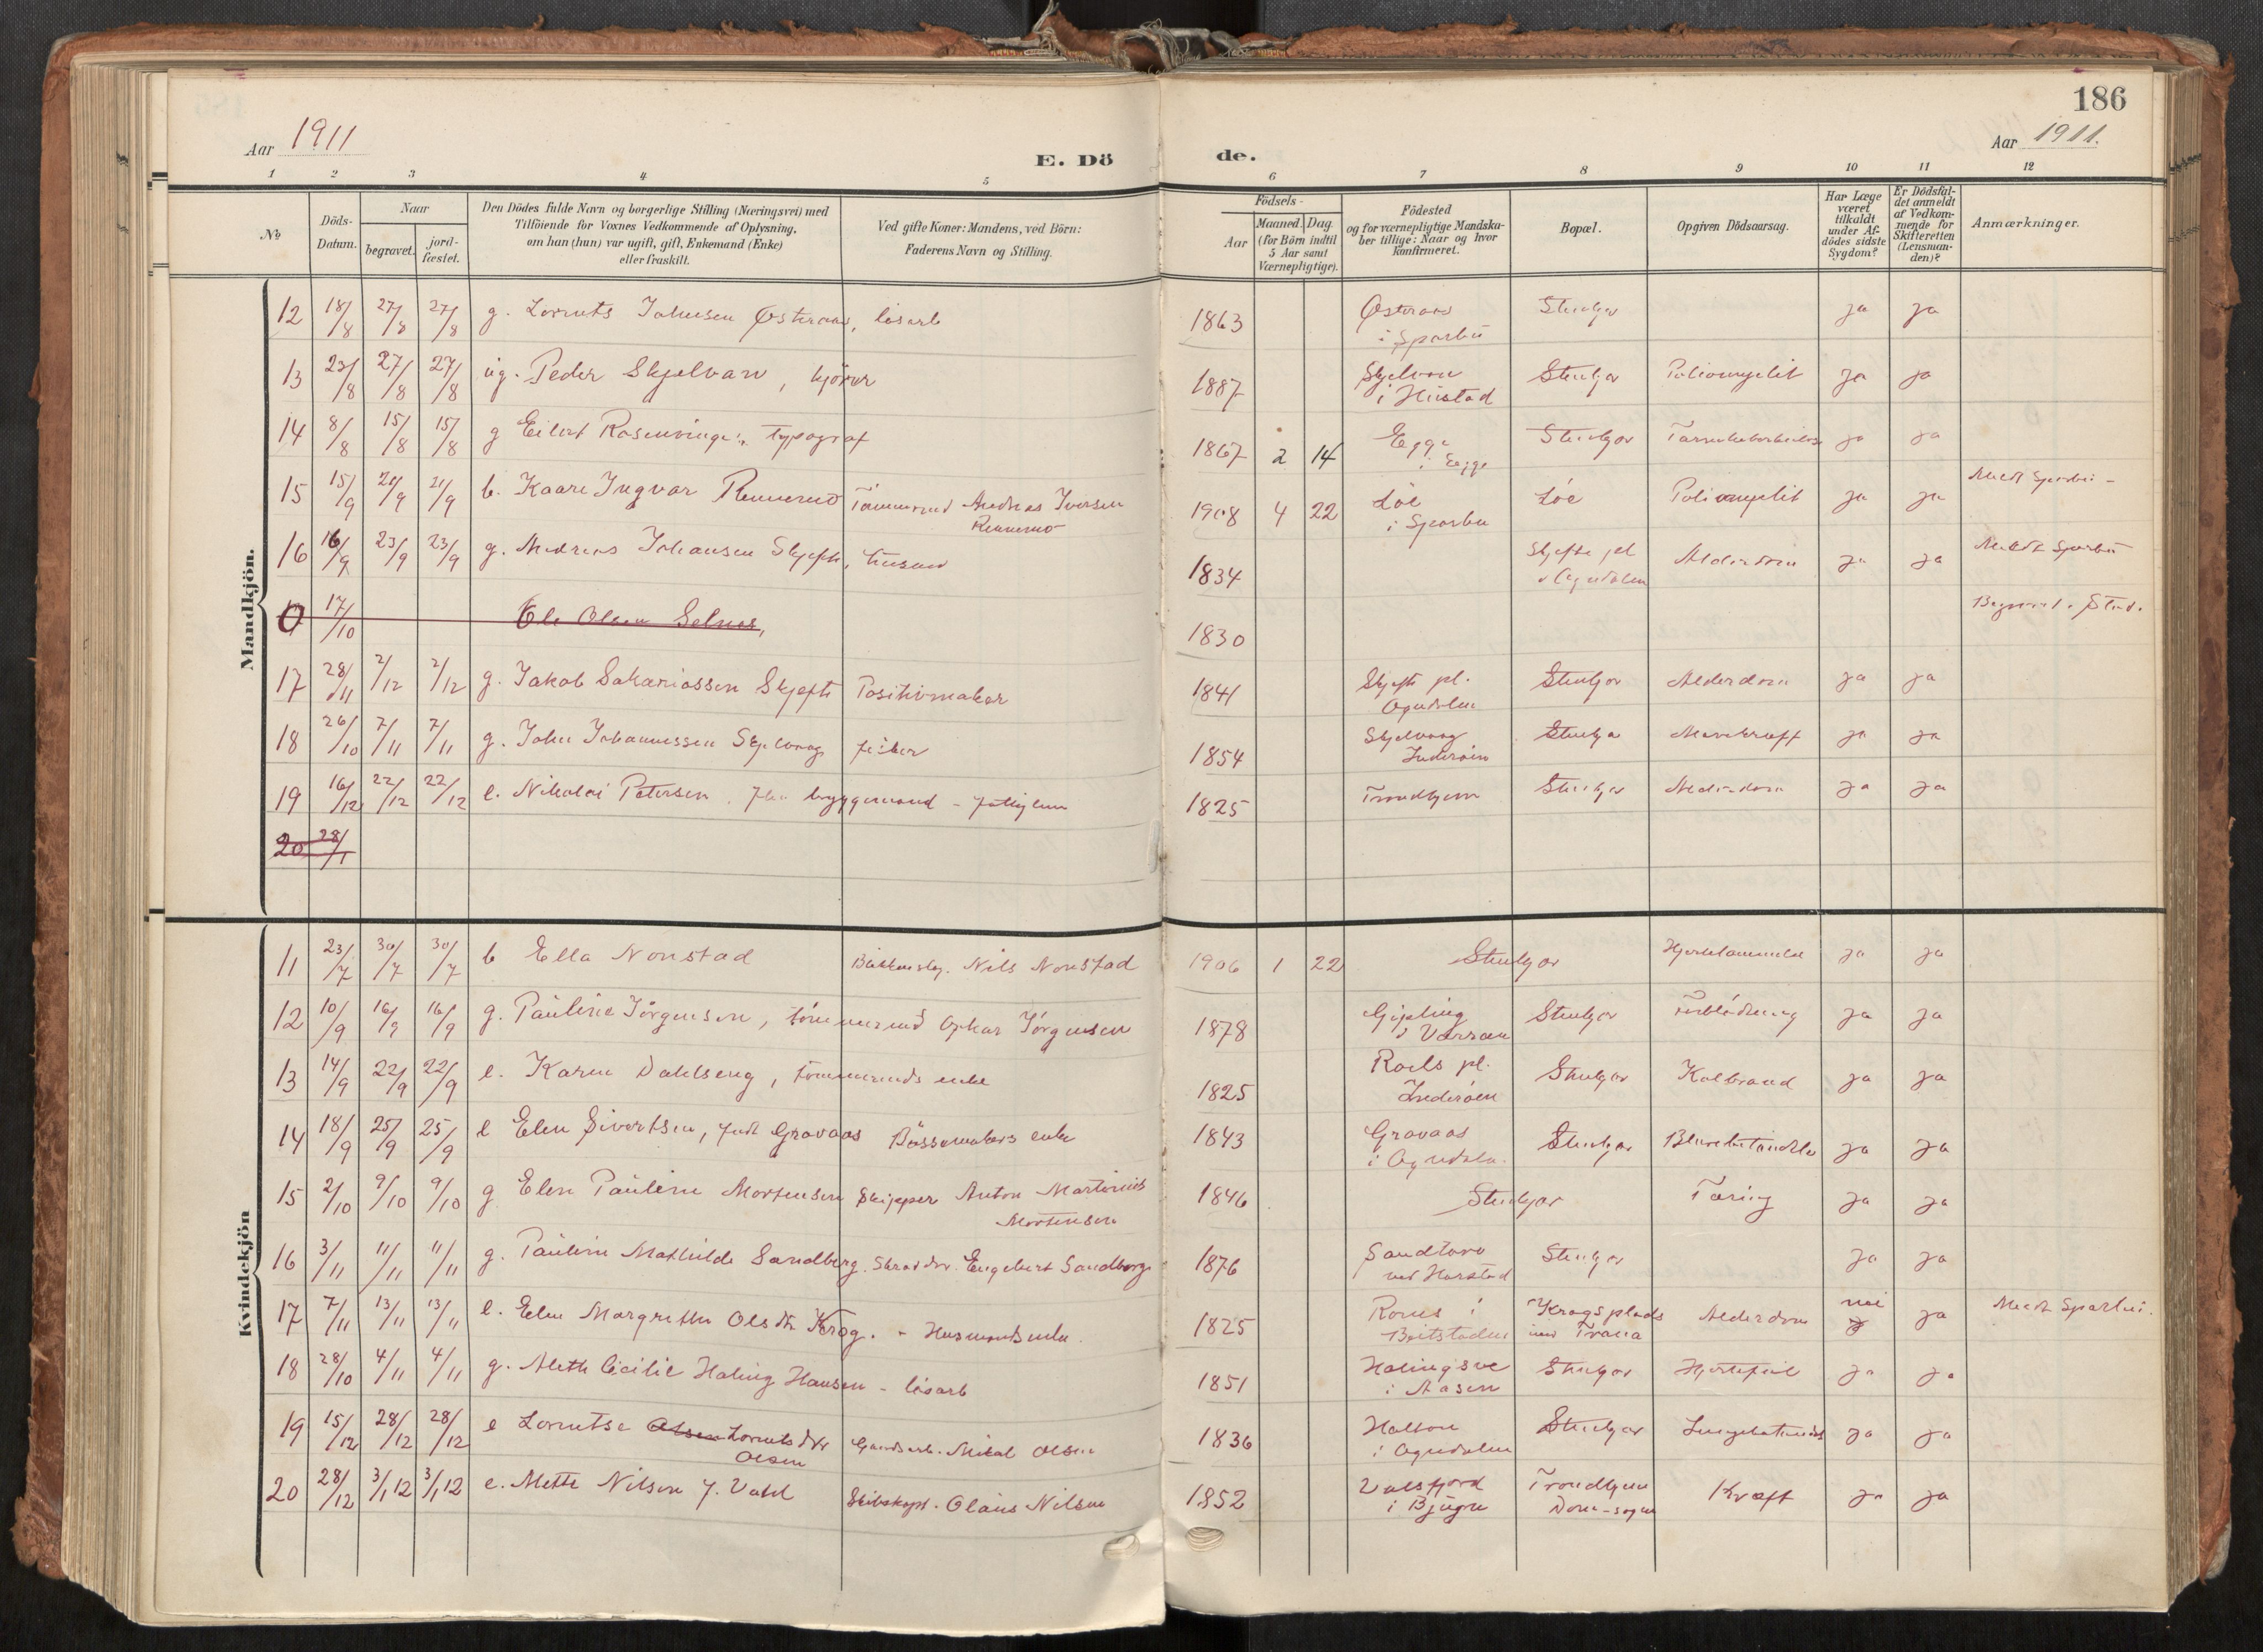 186
Aar 1911
E. Dö
de.
Aar 1911.
1 2 3 4 5 6 7 8 9 10 11 12
No
Döds-Datum.
Naar
begravet.
jord-fæstet.
Den Dödes fulde Navn og borgerlige Stilling (Næringsvei) med
Tilföiende for Voxnes Vedkommende af Oplysning,
om han (hun) var ugift, gift, Enkemand (Enke)
eller fraskilt.
Ved gifte Koner: Mandens, ved Börn:
Faderens Navn og Stilling.
Födsels-
Aar
Maaned. Dag.
(for Börn indtil
5 Aar samt
Værnepligtige).
Födested
og for værnepligtige Mandska-
ber tillige: Naar og hvor
konfirmeret.
Bopæl.
Opgiven Dödsaarsag.
Har Læge
været
tilkaldt
under Af-
dödes sidste
Sygdom?
Er Dödsfal-
det anmeldt
af Vedkom-
mende for
Skifteretten
(Lensman-
den)?
Anmærkninger.
Mandkjön.
12 18/8 27/8 27/8 g. Lornts Johnsen Østeraas, løsarb 1863 Østeraas Stenkjær ja ja
i Sparbu
13 23/8 27/8 27/8 ug. Peder Skjelvan, kjører 1887 Skjelvan Stenkjær Poliomyelit ja ja
i Hustad
14 8/8 15/8 15/8 g Eilert Rosenvinge, typograf 1867 2 14 Egge Stenkjær ja ja
i Egge
15 15/9 21/9 21/9 b. Kaare Ingvar Rennemo Tømmermd Andreas Iversen 1908 4 22 Løe Løe Poliomyelit ja ja Medt Sparbu -
Rennemo i Sparbu
16 16/9 23/9 23/9 g. Andreas Johansen Skjefte, husmd 1834 Skjefte pl Alderdom ja ja Medt Sparbu
i Ogndalen
0 17/10 Ole Olsen Selnes, 1830 Begravet i Stod.
17 28/11 2/12 2/12 g. Jakob Sakariassen Skjefte Positivmaker 1841 Skjefte pl. Stenkjær Alderdom ja ja
Ogndalen
18 26/10 7/11 7/11 g. John Johannessen Skjelvaag fisker 1854 Skjelvaag Stenkjær Mavekræft ja ja
Inderøen
19 16/12 22/12 22/12 e. Nikolai Petersen, bryggemand - fattiglem 1825 Trondhjem Stenkjær Alderdom ja ja
20 28/1
Kvindekjön
11 23/7 30/7 30/7 b Ella Nonstad Nils Nonstad 1906 1 22 Stenkjær ja ja
12 10/9 16/9 16/9 g. Pauline Jørgensen, tømmermd Oskar Jørgensen 1878 Gipling Stenkjær Forblødning ja ja
i Værran
13 14/9 22/9 22/9 e. Karen Dahlseng, tømmermds enke 1825 Roels pl. Stenkjær Kolbrand ja ja
Inderøen
14 18/9 25/9 25/9 e Elen Sivertsen, født Gravaas Bøssemakers enke 1843 Gravaas Stenkjær ja ja
i Ogndalen
15 2/10 9/10 9/10 g Elen Pauline Mortensen Skipper Anton Martinius 1846 Stenkjær Tæring ja ja
Mortensen
16 3/11 11/11 11/11 g. Pauline Mathilde Sandberg. Skræddr. Engebert Sandberg 1876 Sandtorv Stenkjær ja ja
ved Harstad
17 7/11 13/11 13/11 e. Elen Margrethe Olsdtr Krog. - Husmands enke 1825 i Krogsplads Alderdom nei ja Medt Sparbu.
Beitstaden
18 28/10 4/11 4/11 g. Aleth Cicilie Haling Hansen - løsarb 1851 Halingsve Stenkjær Hjertefeil ja ja
i Aasen
19 15/12 28/12 28/12 e Lorentse Olsen Lorntsdtr Mikal Olsen 1836 Stenkjær ja ja
Olsen i Ogndalen
20 28/12 3/1 12 3/1 12 e. Mette Nilsen f. Vahl Skibskapt. Olaus Nilsen 1852 Valsfjord Trondhjem Kræft ja ja
i Bjugn Dom-sogn